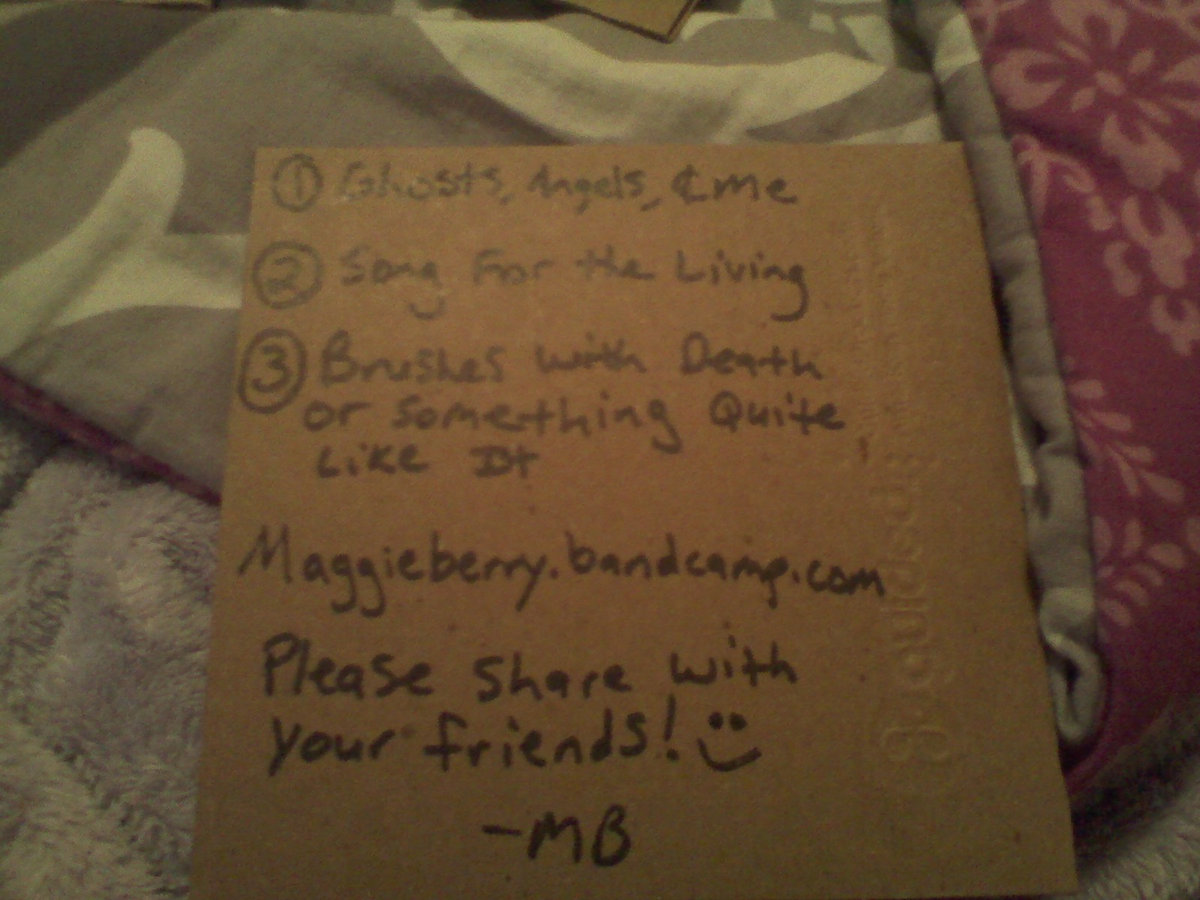 ① Ghosts, Angels, & me
② Song For the Living
③ Brushes with Death
or something Quite
Like It
Maggieberry.bandcamp.com
Please share with
your friends! :)
-MB